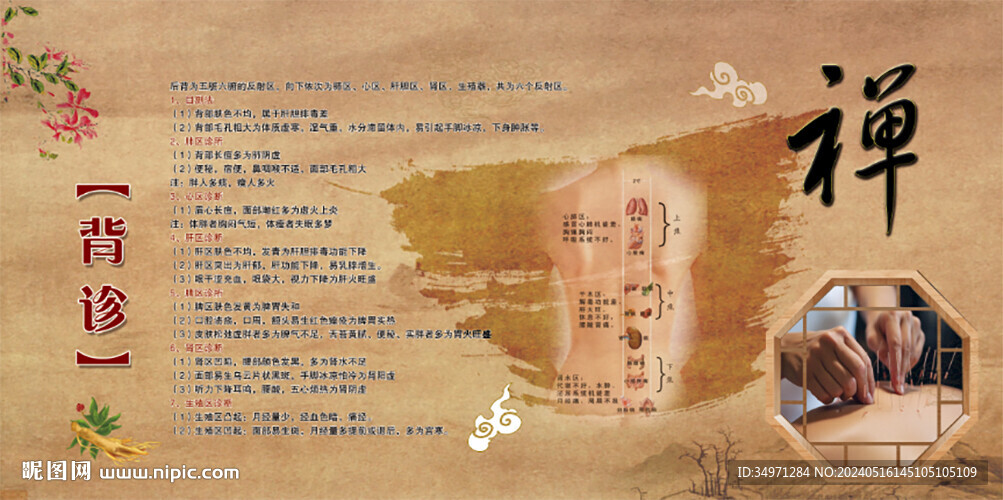 禅
【背诊】
后背为五脏六腑的反射区，向下依次为肺区、心区、肝胆区、肾区、生殖器，共为六个反射区。
（1）背部肤色不均，属于肝胆排毒差
（2）背部毛孔粗大为体质虚寒、湿气重，水分滞留体内，易引起手脚冰凉，下身肿胀等。
2、肺区诊断
（1）背部长痘多为肺阴虚
（2）便秘，宿便，鼻咽喉不适、面部毛孔粗大
注：胖人多痰，瘦人多火
3、心区诊断
（1）眉心长痘，面部潮红多为虚火上炎
注：体胖者胸闷气短，体瘦者失眠多梦
4、肝区诊断
（1）肝区肤色不均，发青为肝胆排毒功能下降
（2）肝区突出为肝郁，肝功能下降，易乳腺增生。
（3）眼干涩充血，眼袋大，视力下降为肝火旺盛
5、脾区诊断
（1）脾区肤色发黄为脾胃失和
（2）口腔溃疡，口周，额头易生红色痤疮为脾胃实热
（3）皮肤松弛虚胖者多为脾气不足，
6、肾区诊断
（1）肾区凹陷，腰部颜色发黑，多为肾水不足
（2）面部易生乌云片状黑斑，手脚冰凉怕冷为肾阳虚
（3）听力下降耳鸣，腰酸，五心烦热为肾阴虚
7、生殖区诊断
（1）生殖区凸起：月经量少，经血色暗、痛经，
（2）生殖区凹起：面部易生斑，月经量多提前或退后，多为宫寒。
心肺区：
上焦
中焦
肾水区：
下焦
昵图网 www.nipic.com
ID:34971284 NO:20240516145105105109